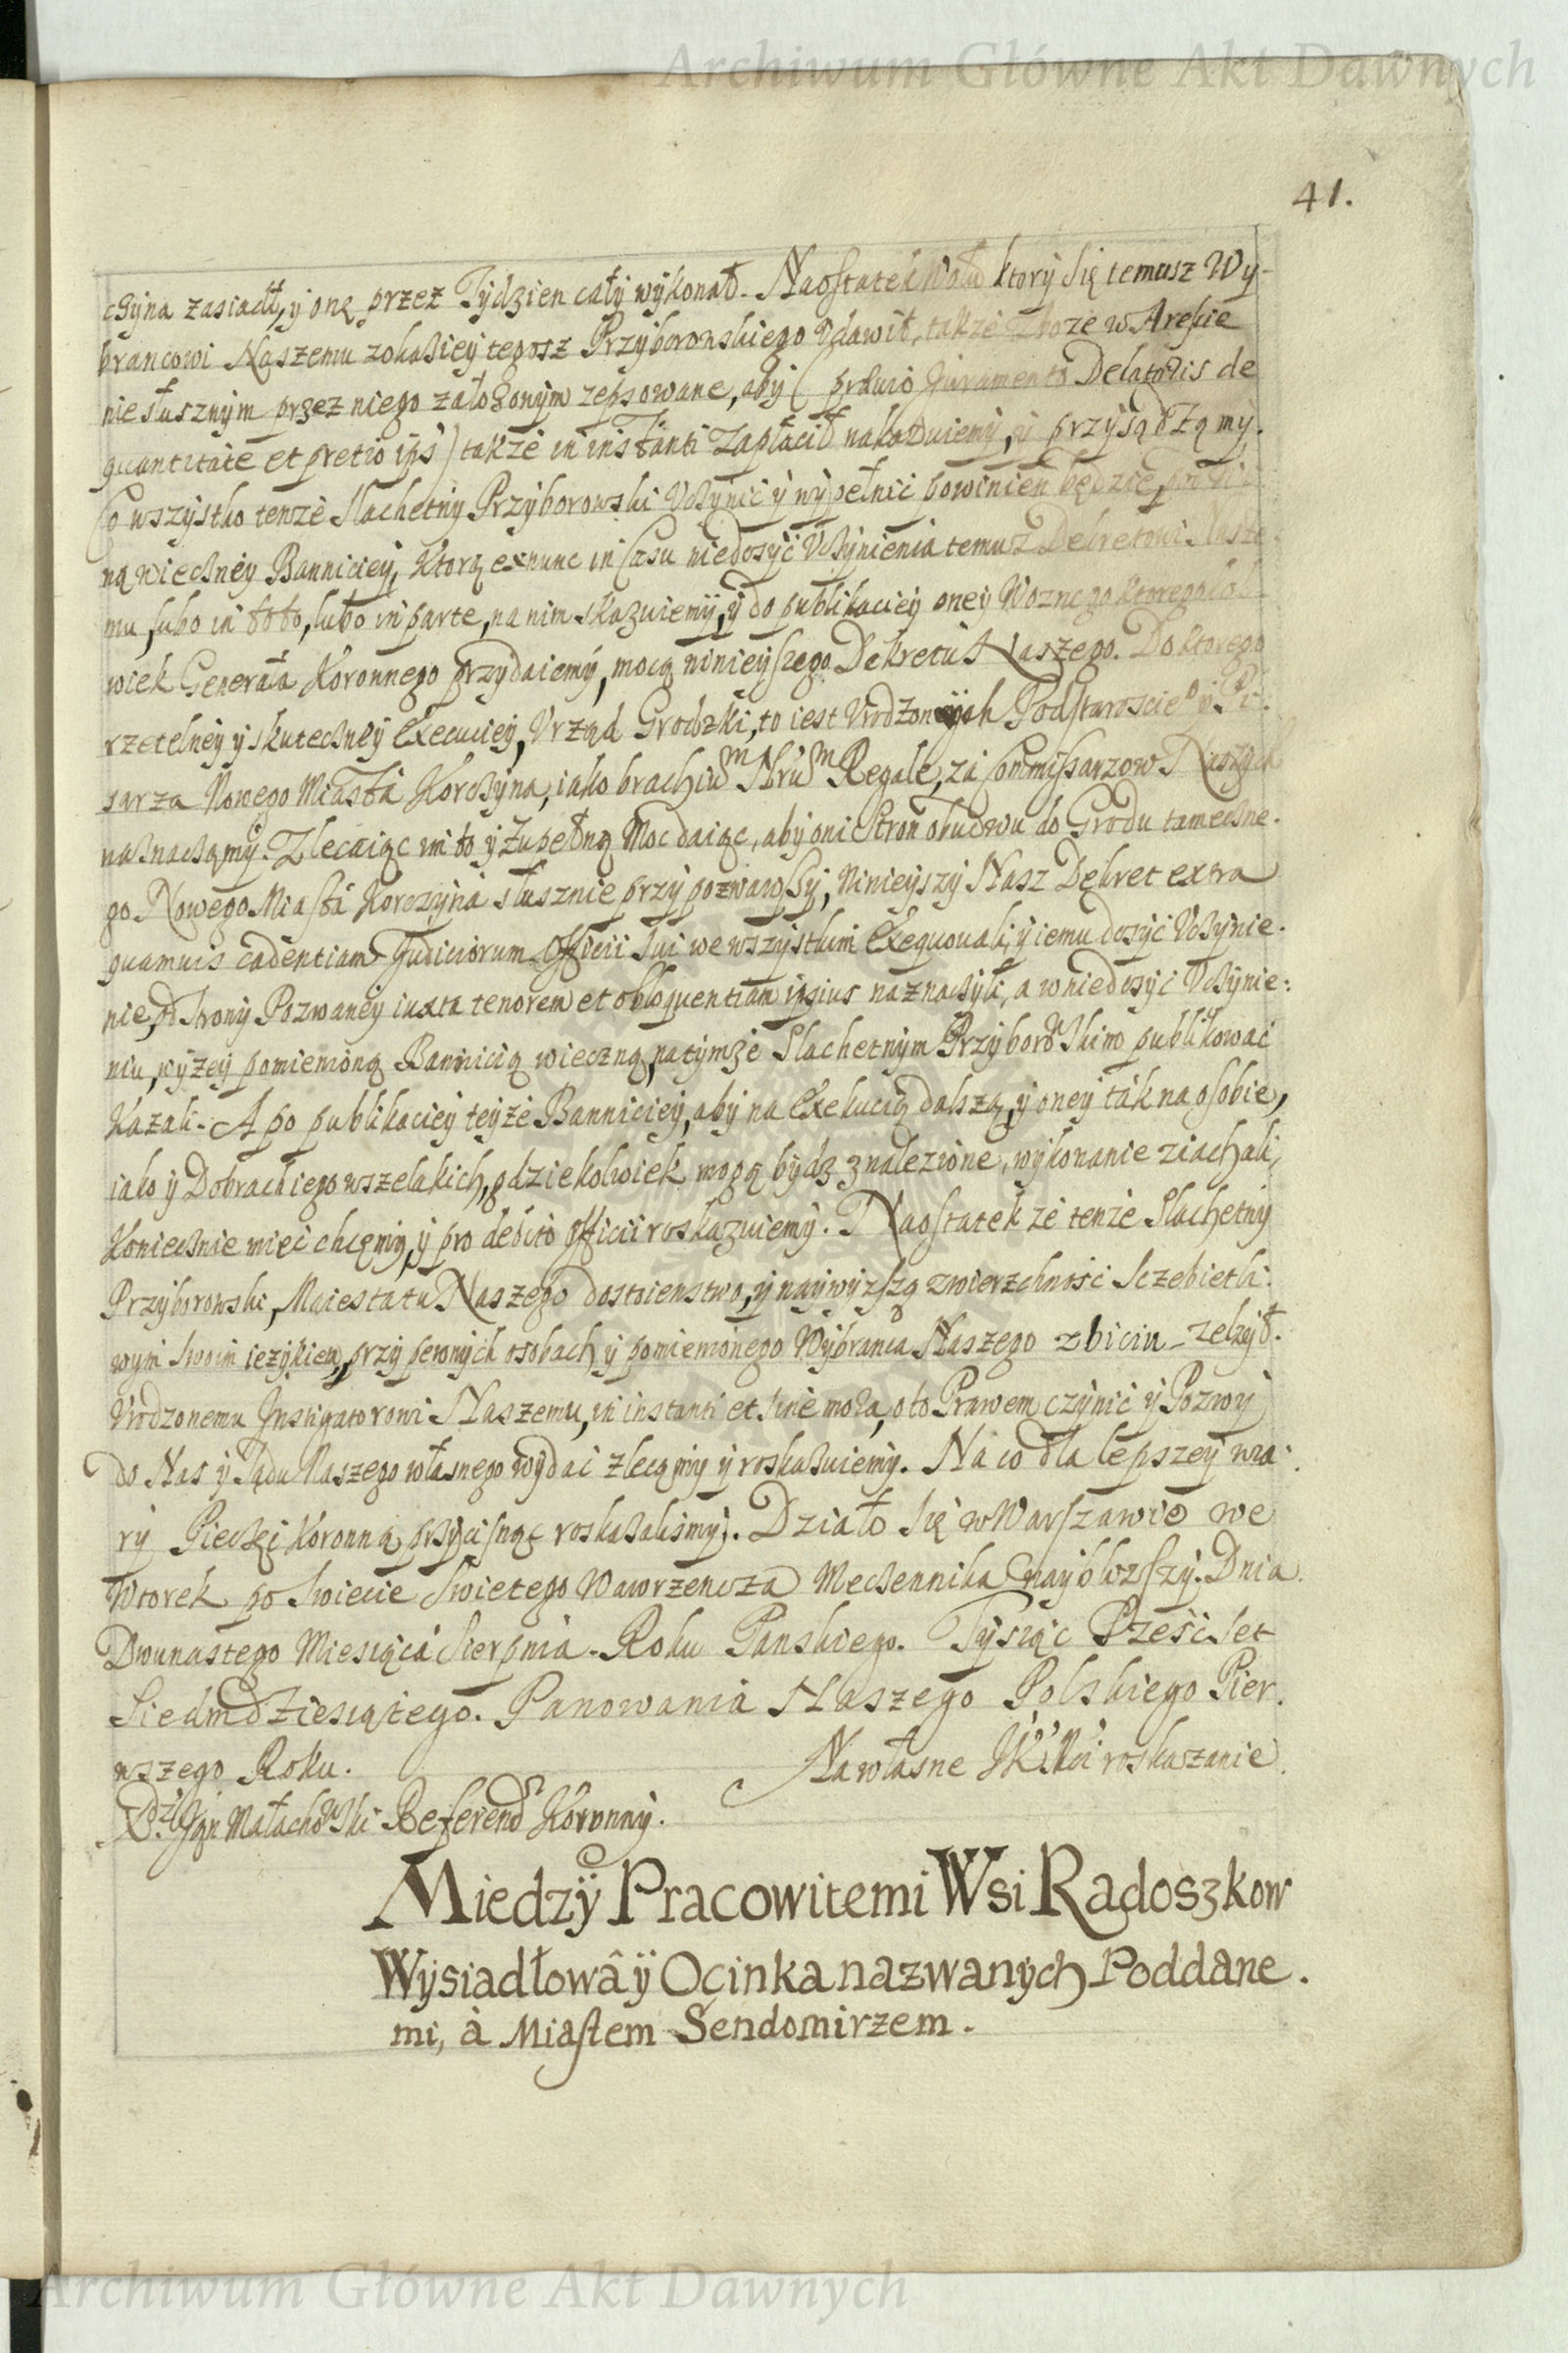 Archiwum Główne Akt Dawnych
41.
czyna zasiadł, y onę przez Tydzien cały wykonał. Naostatek Wołu ktory się temusz Wy-
brancowi Naszemu zokaziey tegosz Przyborowskiego Udawił, także zboże w Areście
niesłusznym przez niego założonym zepsowane, aby (praeuio Juramento Delatoris de
quantitate et pretio ips) także in instanti zapłacił nakazuiemy, y przysądzamy.
Co wszystko tenże Slachetny Przyborowski Uczynić y wypełnić powinien będzie, pod wi-
ną wieczney Banniciey, Ktorą exnunc in Casu niedosyć Uczynienia temusz Dekretowi Nasze
mu, lubo in toto, lubo in parte, na nim skazuiemy, y do publikaciey oney Woznego ktoregokol-
wiek Generała Koronnego przydaiemy, mocą ninieyszego Dekretu Naszego. Do ktorego
rzetelney y skuteczney Execuciey, Vrząd Grodzki, to iest Vrodzonych Podstarosciego y Pi-
sarza Nowego Miasta Korczyna, iako brachiu͞m Nru͞m Regale, za Commissarzow Naszych
naznaczamy. Zlecaiąc im to y zupełną Moc daiąc, aby oni Stron obudwu do Grodu tameczne-
go Nowego Miasta Korczyna słusznie przypozwawszy, Ninieyszy Nasz Dekret extra
quamuis cadentiam Judiciorum Officii sui we wszystkim Exequowali, y iemu dosyć Uczynie-
nie, od strony Pozwaney iuxta tenorem et obloquentiam ipsius naznaczyli, a w niedosyć Uczynie:
niu, wyżey pomienioną Bannicią wieczną, na tymże Slachetnym Przyborowskim publikować
Kazali. A po publikaciey teyże Banniciey, aby na Exekucią dalszą, y oney tak na osobie,
iako y Dobrach iego wszelakich, gdziekolwiek mogą bydz znalezione, wykonanie ziachali,
Koniecznie mieć chcemy, y pro debito officii roskazuiemy. Naostatek że tenże Slachetny
Przyborowski, Maiestatu Naszego dostoienstwo, y naywyższą zwierzchność Sczebietli-
wym swoim ięzykiem, przy pewnych osobach y pomienionego Wybranca Naszego zbiciu zelżył.
Vrodzonemu Instigatorowi Naszemu, in instanti et sine mora, o to Prawem czynić y Pozwy
Do Nas y Sądu Naszego własnego wydać zlecamy y roskazuiemy. Na co dla lepszey wia-
ry Pieczęć Koronną przycisnąć roskazaliśmy. Działo się w Warszawie we
Wtorek po Swiecie Swietego Wawrzenca Meczennika naybliższy. Dnia
Dwunastego Miesiąca Sierpnia. Roku Panskiego. Tysiąc Szescset
Siedmdziesiątego. Panowania Naszego Polskiego Pier-
wszego Roku.
Na własne JKMci roskazanie.
Jan Małachowski Referend Koronny.
Miedzÿ Pracowitemi Wsi Radoszkow
Wysiadłowâ ÿ Ocinka nazwanych Poddane.
mi, à Miastem Sendomirzem.
Archiwum Główne Akt Dawnych